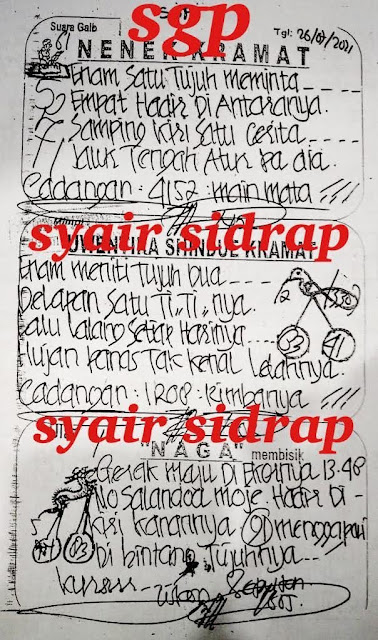 sgp
Suara Gaib
Tgl: 26/07/2021
NENEK KRAMAT
Enam Satu Tujuh meminta
Empat Hadir Di Antaranya.
Samping kiri Satu Cerita
Tengah Atur
Cadangan: 4152: main mata
syair sidrap
UWENTIRA SHINDUE KRAMAT
Enam meniti Tujuh Dua
Delapan Satu Ti,,Ti,,nya.
Lalu Lalang Setiap Harinya
Hujan Panas Tak Kenal Lelahnya.
Cadangan: 1208: Rimbanya
83 41
syair sidrap
"NAGA" membisik
Gerak Maju Di Ekornya 13-48
No Salandoa moje. Hadir Di
kiri kanannya menggapai
Di bintang Tujuhnya
83